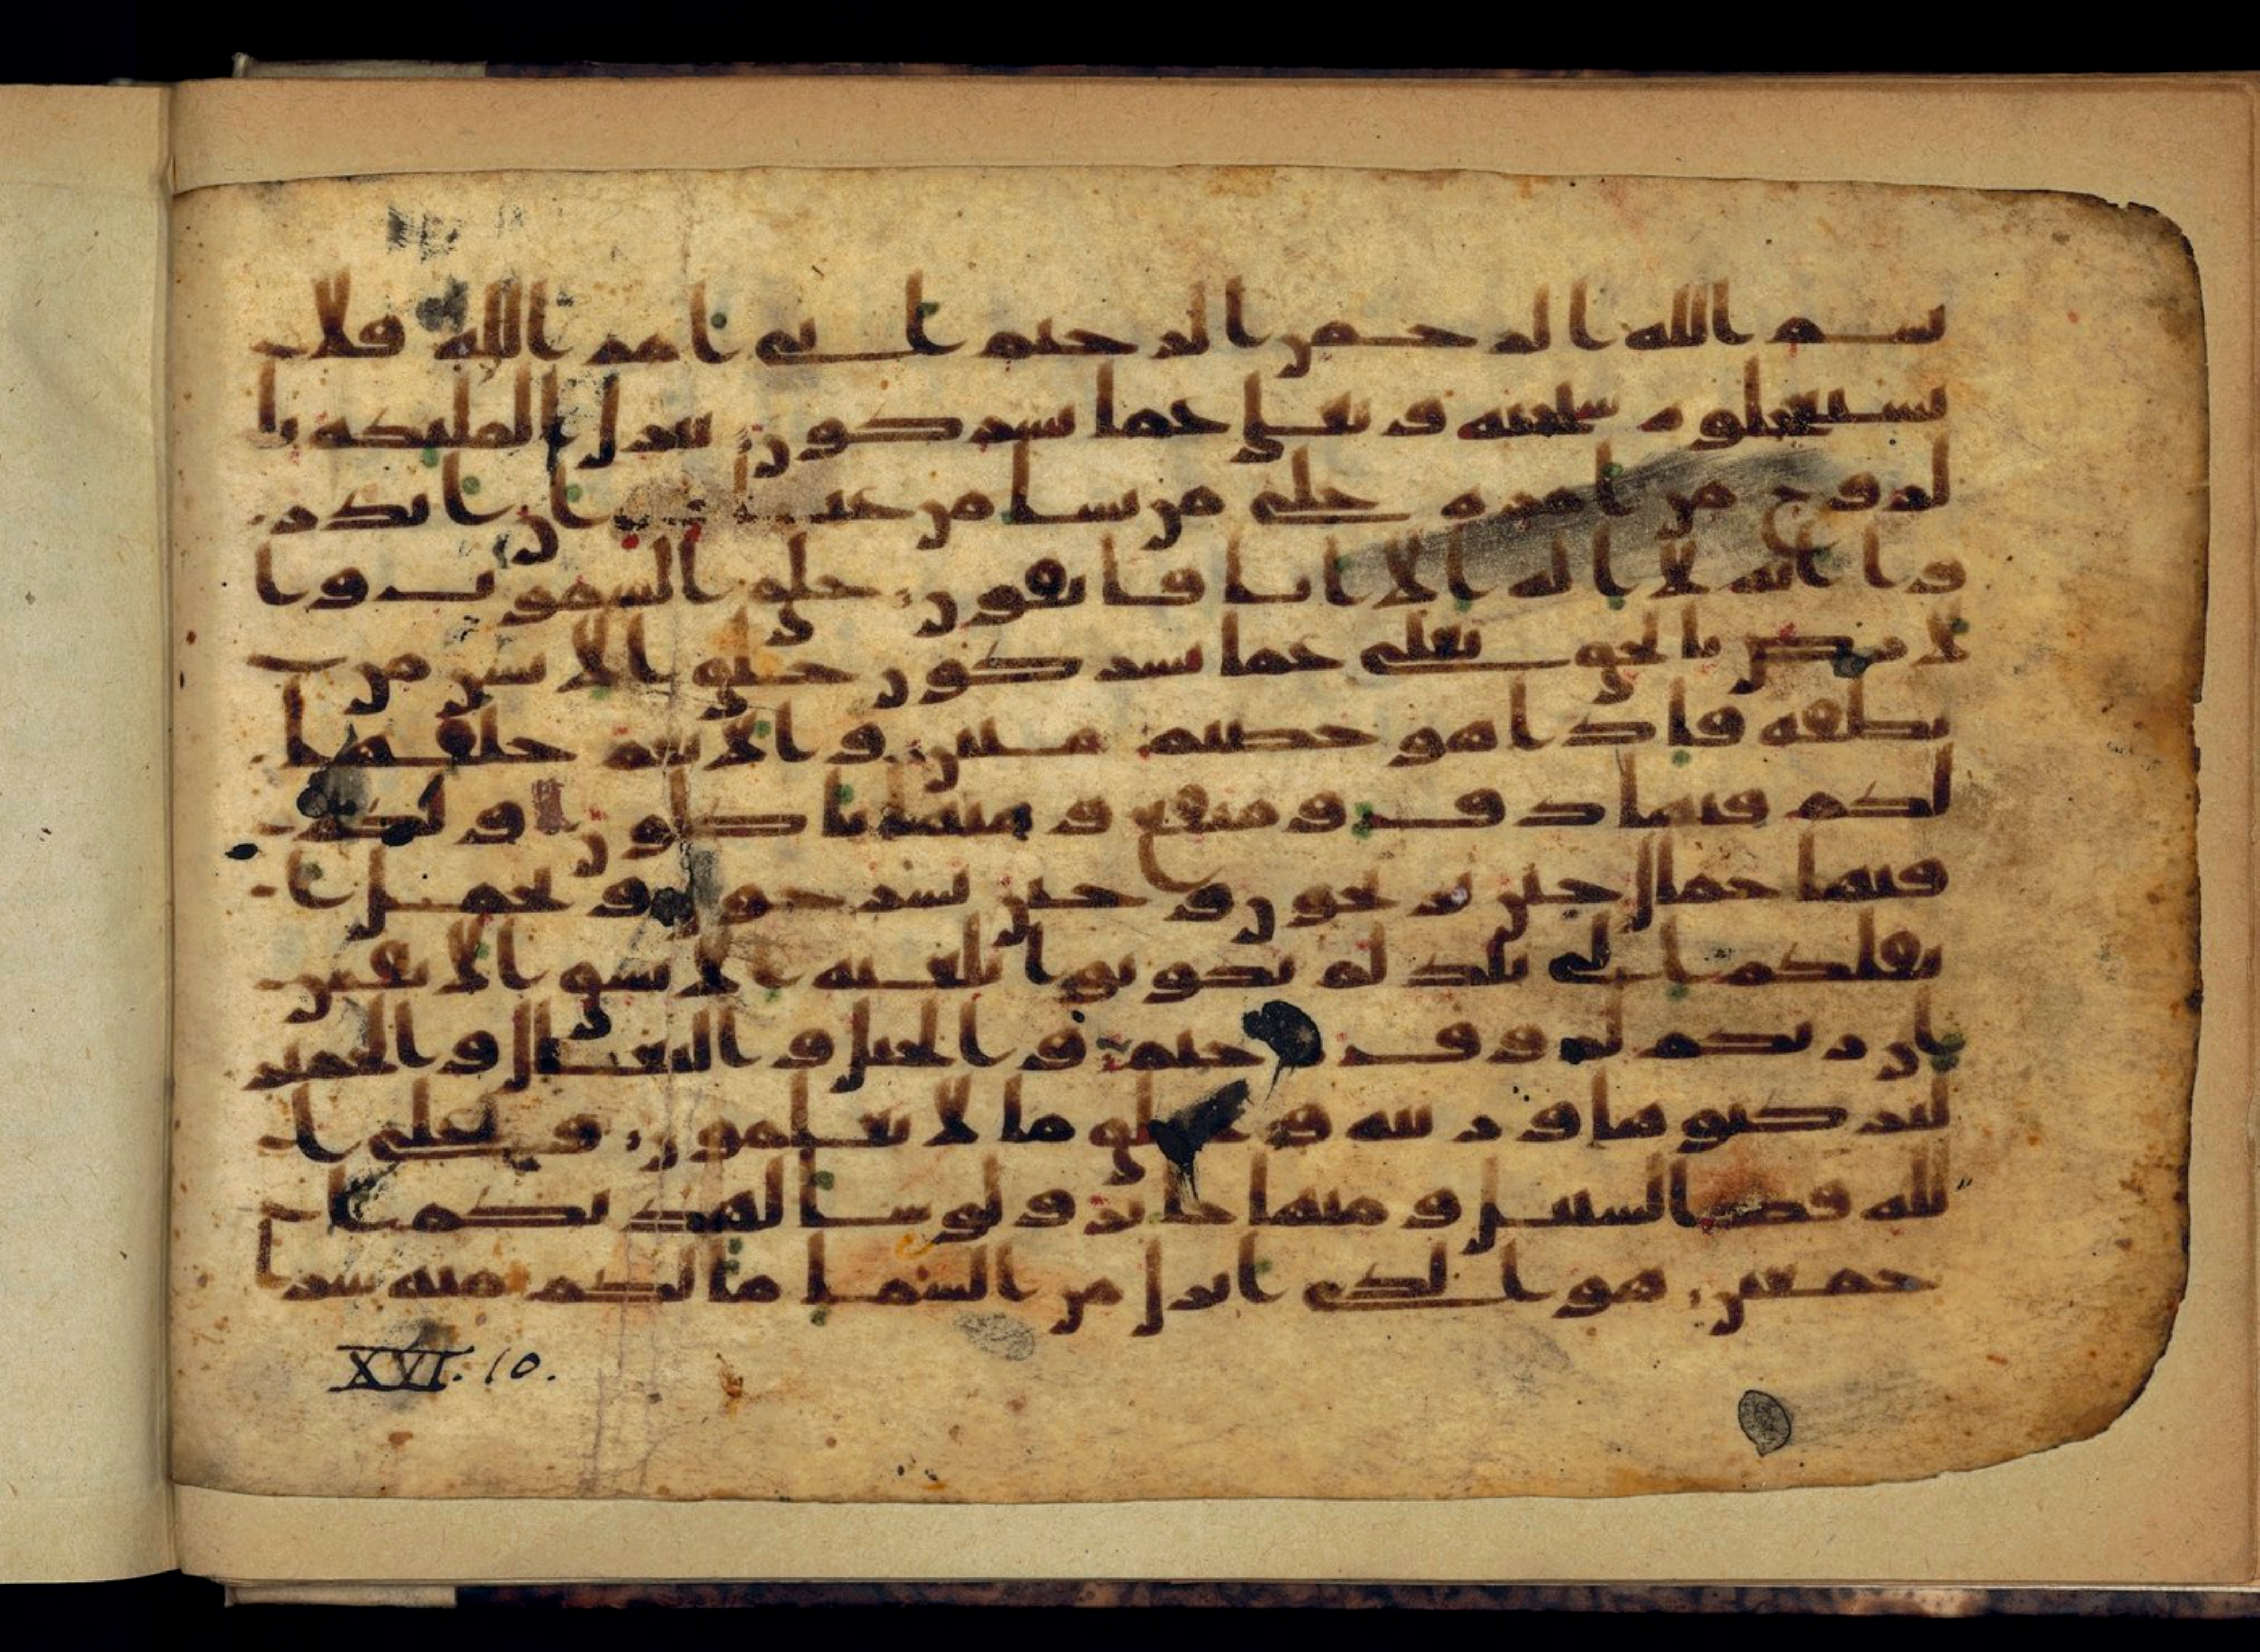 بسم الله الرحمن الرحيم اتى امر الله فلا
تستعجلوه سبحنه وتعلى عما يشركون ينزل الملئكة با
لروح من امره على من يشا من عباده ان انذر
وا انه لا اله الا انا فاتقون خلق السموت وا
لارض بالحق تعلى عما يشركون خلق الانسن من
نطفة فاذا هو خصيم مبين والانعم خلقها
لكم فيها دف ومنفع ومنها تاكلون ولكم
فيها جمال حين تريحون وحين تسرحون وتحمل ا
ثقلكم الى بلد لم تكونوا بلغيه الا بشق الانفس
ان ربكم لروف رحيم والخيل والبغال والحمير
لتركبوها وزينة ويخلق ما لا تعلمون وعلى ا
لله قصد السبيل ومنها جاير ولو شا لهديكم ا
جمعين هو الذي انزل من السما ما لكم منه شرا
XVI. 10.